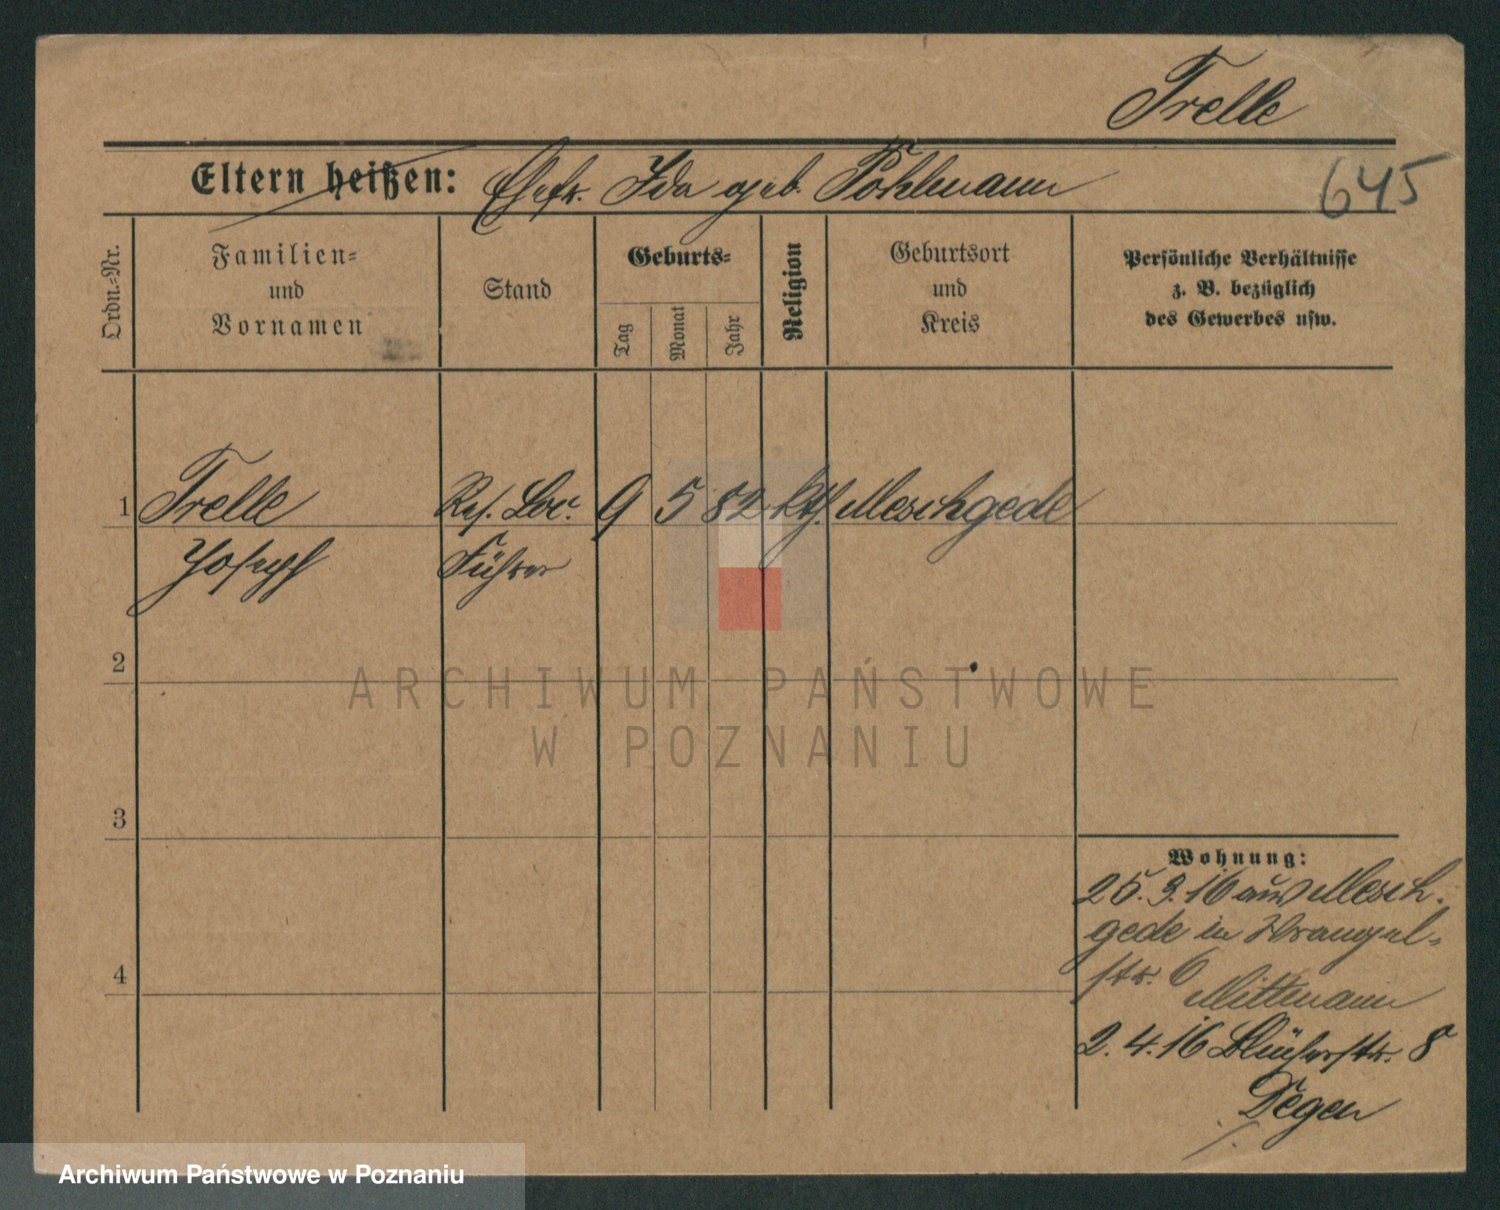 Trelle
Eltern heißen: Ehefr. Ida geb. Pohlmann
645
Ordn.-Nr.
Familien-
und
Vornamen
Stand
Geburts-
Tag
Monat
Jahr
Religion
Geburtsort
und
Kreis
Persönliche Verhältnisse
z. B. bezüglich
des Gewerbes usw.
1 Trelle Res. Loc. 9 5 82 kth. Meschgede
Joseph Führer
2
3
4
Wohnung:
25.3.16 aus Mesch-
gede in Wrangel-
str. 6
Mittmann
2.4.16 Blücherstr. 8
Degen
ARCHIWUM PAŃSTWOWE
W POZNANIU
Archiwum Państwowe w Poznaniu